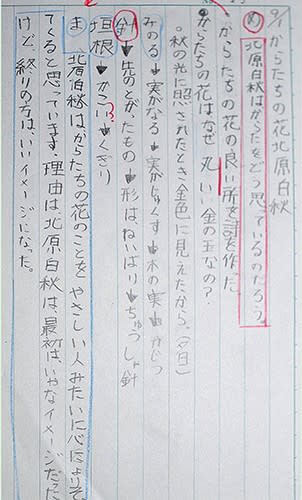 9/1 からたちの花 北原白秋
め 北原白秋はからたちをどう思っているのだろう。
からたちの花の良い所を詩を作った
からたちの花はなぜ丸い金の玉なの?
。秋の光に照されたとき金色に見えたから。(夕日)
みのる→実がなる→実がじゅくす→木の実
針→先のとがったもの→形はねいばり→ちゅうしゃ針
垣根→かこい→くぎり
ま 北原白秋はからたちの花のことをやさしい人みたいに心によりそっ
てくると思っています。理由は北原白秋は、最初は、いやなイメージだった
けど、終りの方は、いいイメージになった。